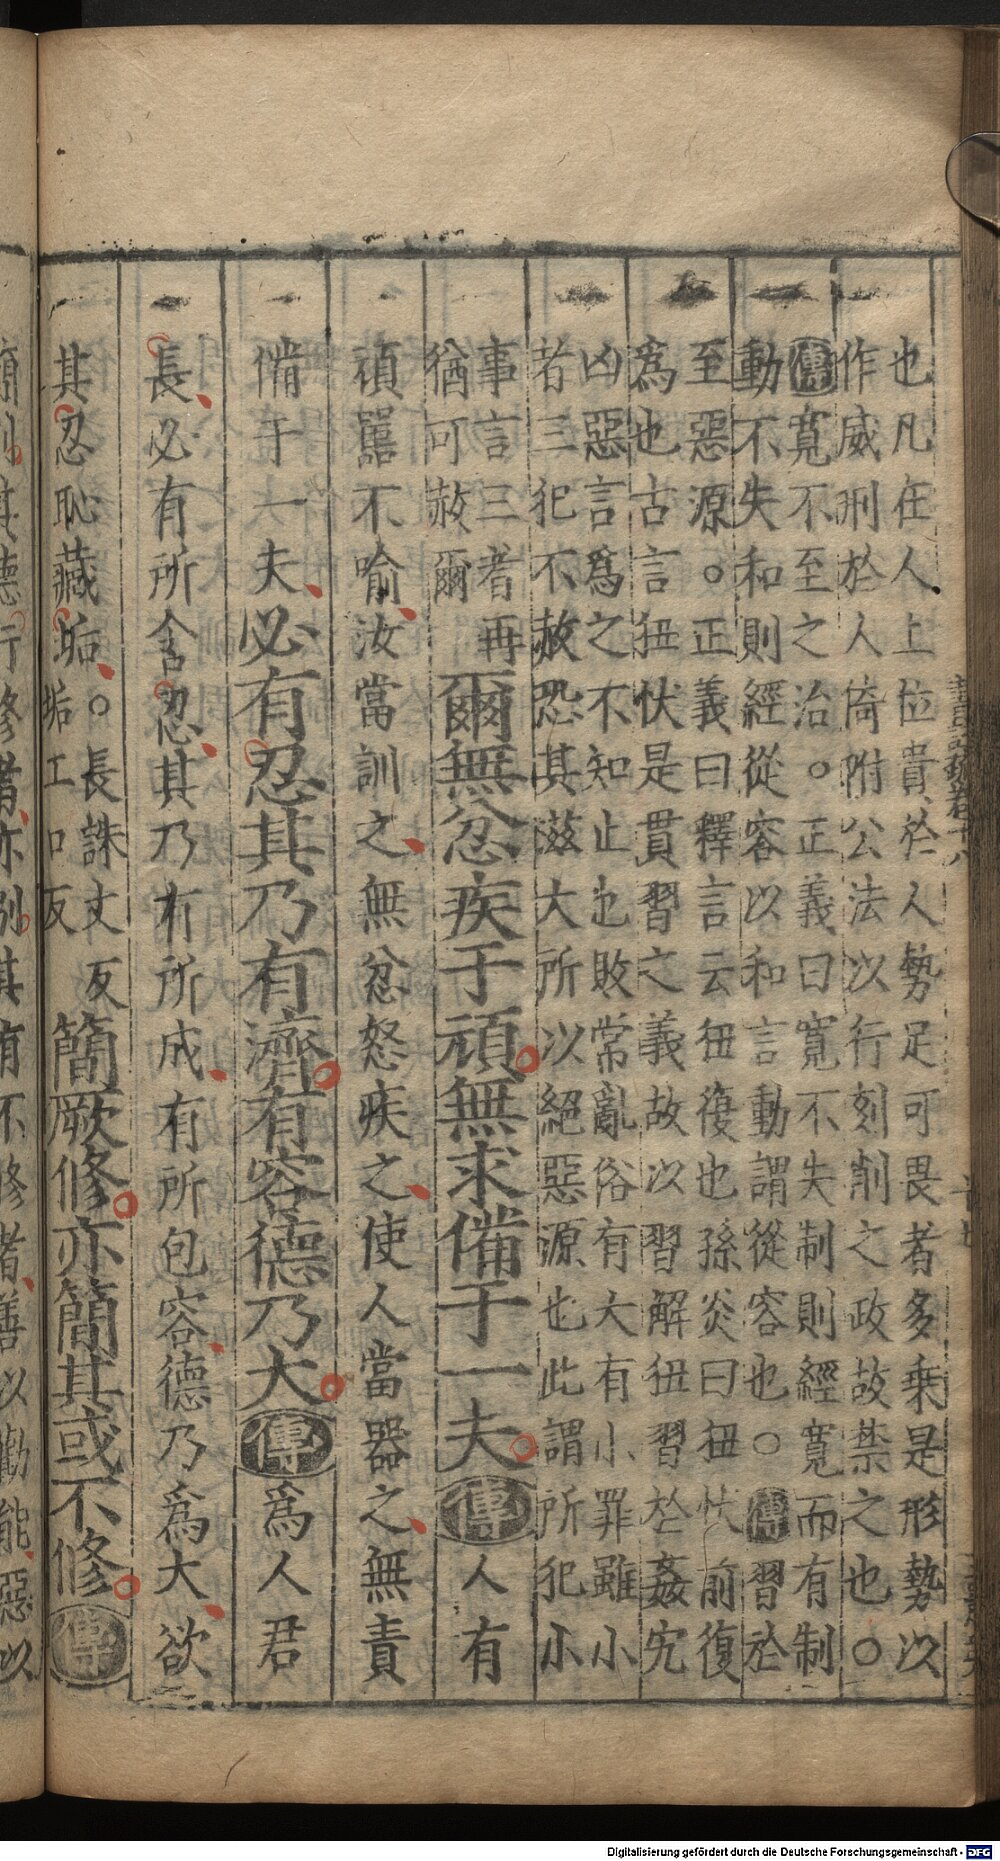 也凡在人上位貴於人勢足可畏者多乗是形勢以
作威刑於人倚附公法以行刻削之政故禁之也〇
傳寬不至之治〇正義曰寬不失制則經寬而有制
動不失和則經從容以和言動謂從容也〇傳習於
至惡源〇正義曰釋言云狃復也孫炎曰狃忕前復
為也古言狃伏是貫習之義故以習解狃習於姦宄
凶惡言爲之不知止也敗常亂俗有大有小罪雖小
者三犯不赦恐其滋大所以絕惡源也此謂所犯小
事言三者再
猶可赦爾
爾無忿疾于頑無求備于一夫傳人有
頑嚚不喻汝當訓之無忿怒疾之使人當器之無責
備于一夫必有忍其乃有濟有容德乃大傳爲人君
長必有所含忍其乃有所成有所包容德乃爲大欲
其忍恥藏垢〇長誅丈反
垢工口反
簡厥修亦簡其或不修傳
簡別其德行修者亦別其有不修者善以勸能惡以
Digitalisierung gefördert durch die Deutsche Forschungsgemeinschaft - DFG